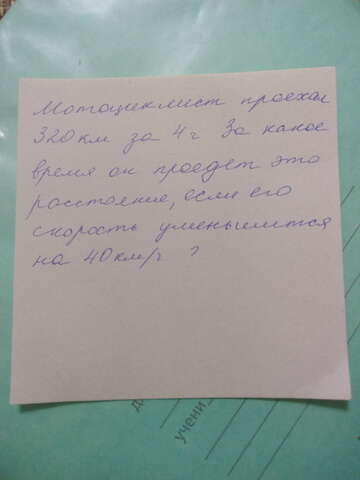 Мотоциклист проехал
320 км за 4 ч За какое
время он проедет это
расстояние, если его
скорость уменьшится
на 40 км/ч ?
учени